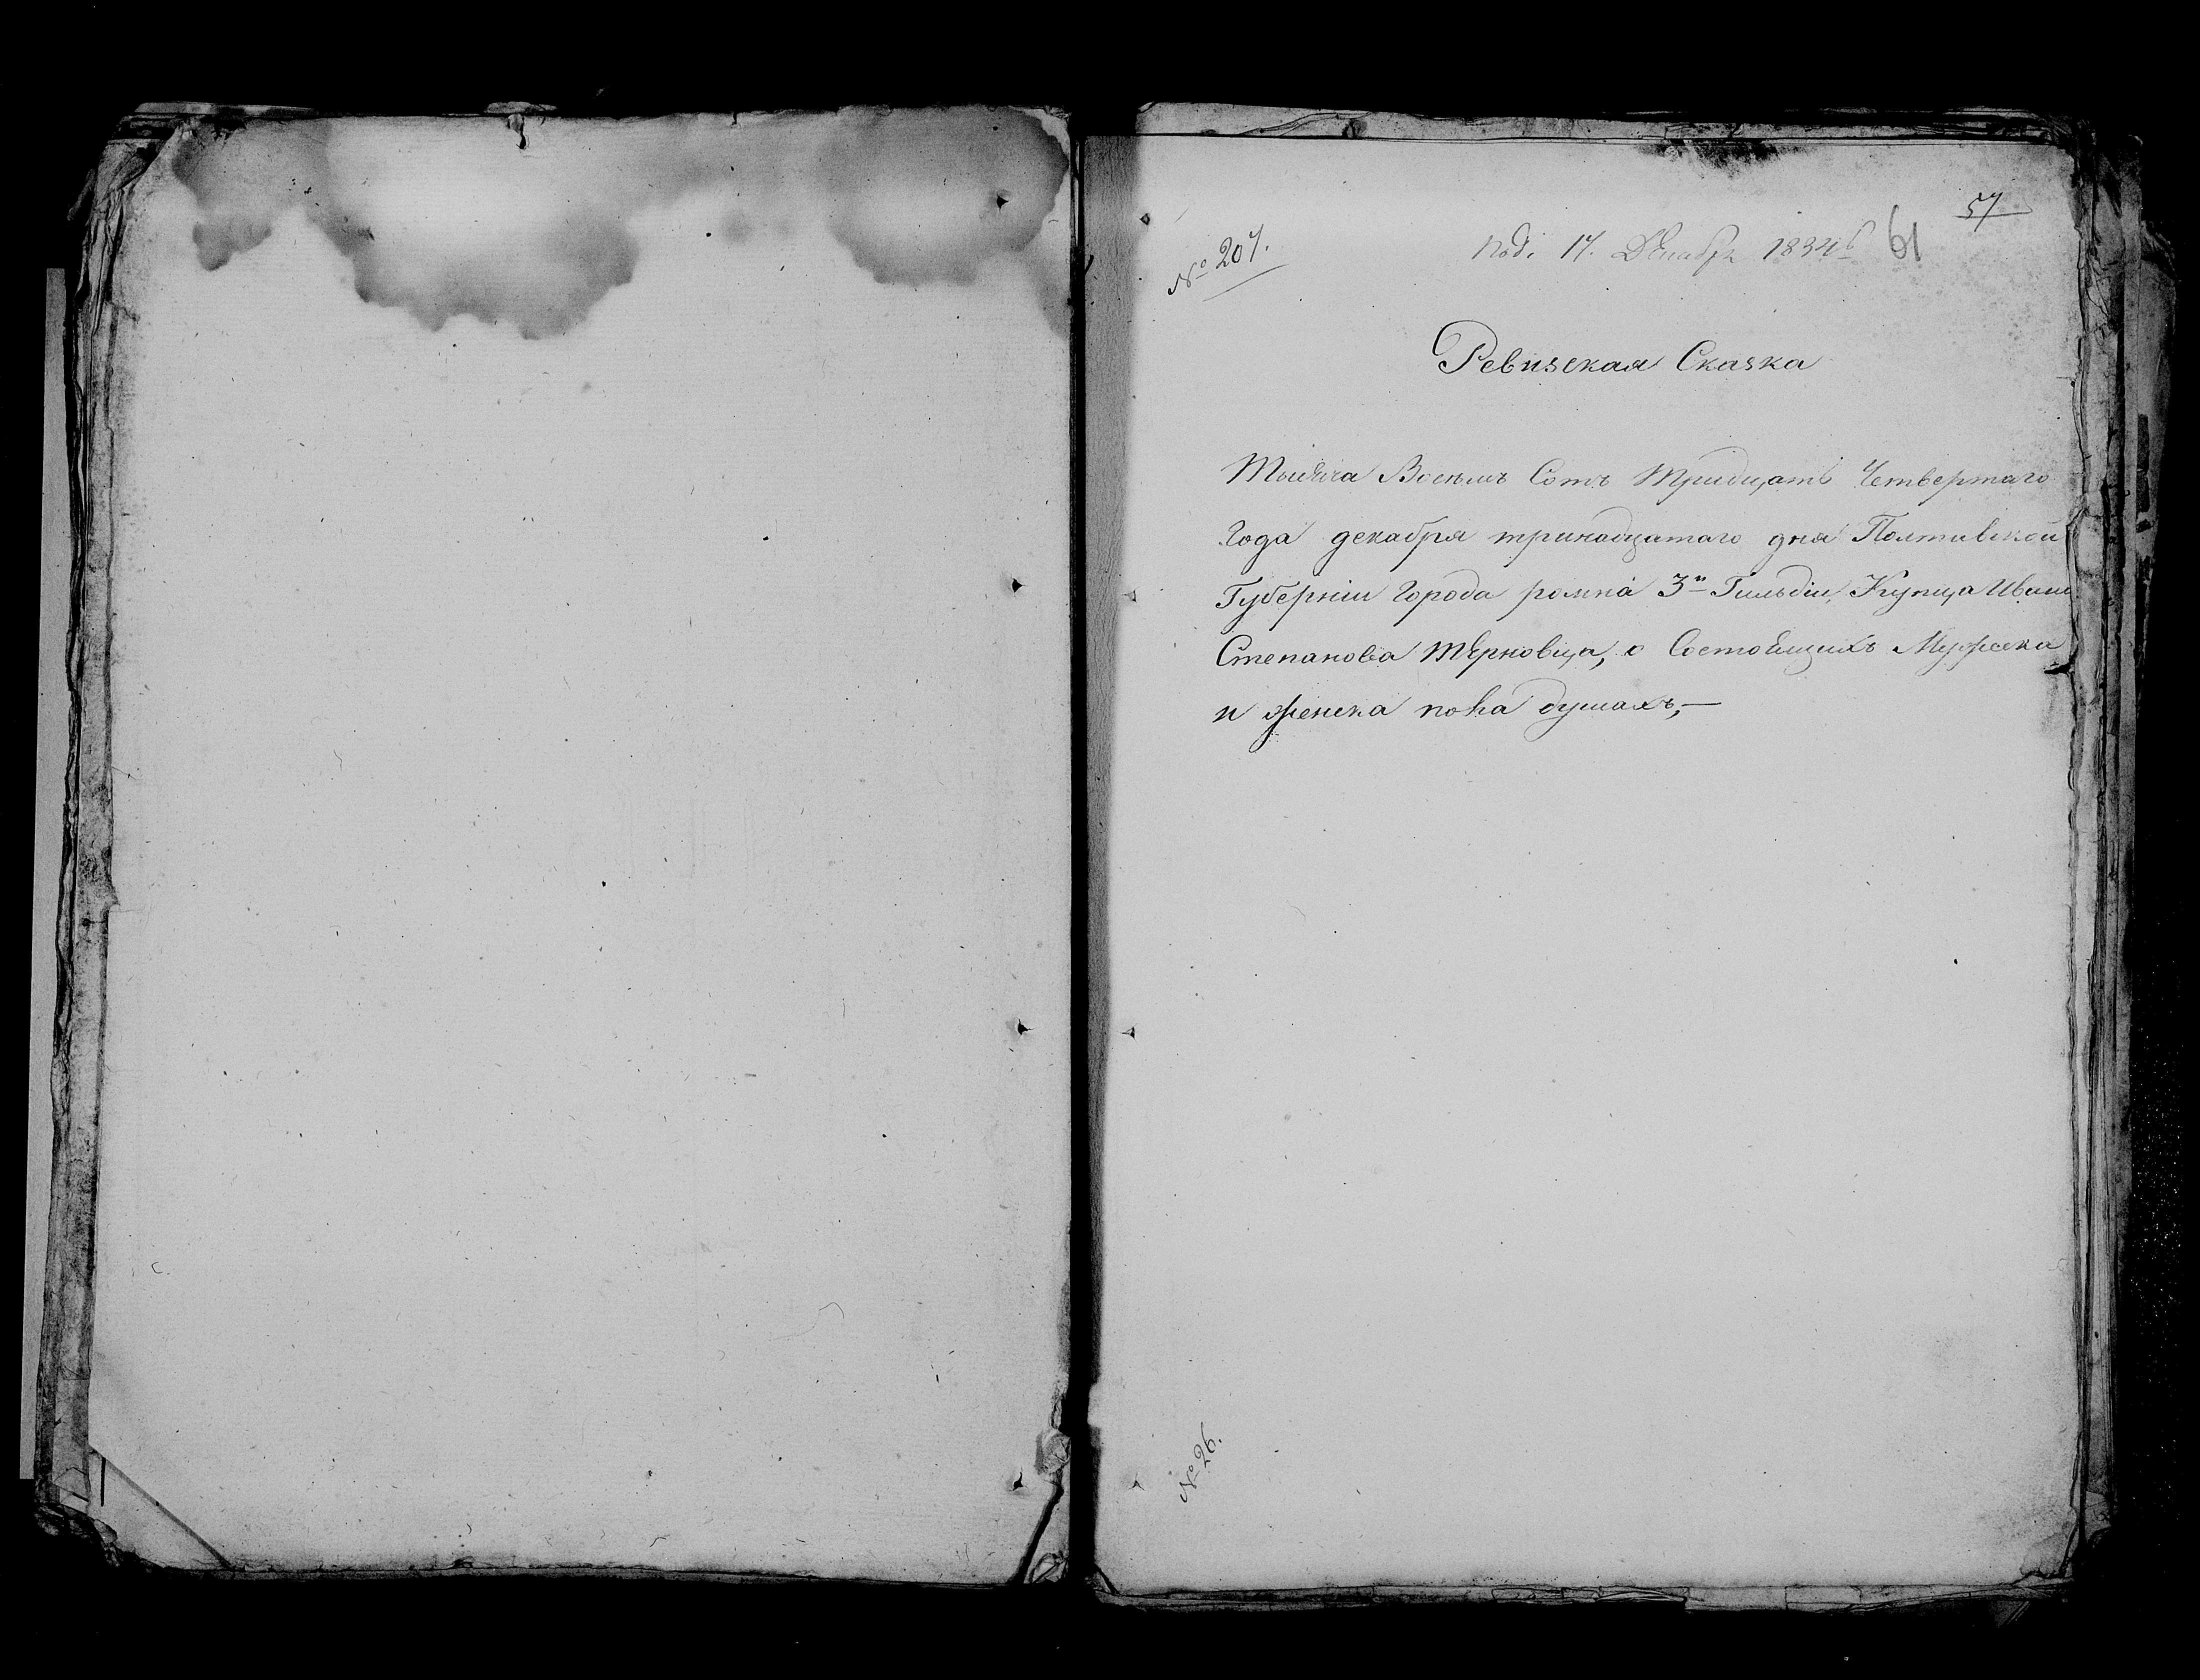 57
№ 207.
Под. 17. Декабря 1834 61
Ревизская Сказка
Тысяча Восемъ Сотъ Тридцать Четвертаго
Года декабря тринадцатаго дня Полтавской
Губерніи Города ромна 3й Гильдіи Купца Ивана
Степанова Терновца, о Состоящихъ Мужеска
и женска пола душахъ,—
№ 26.